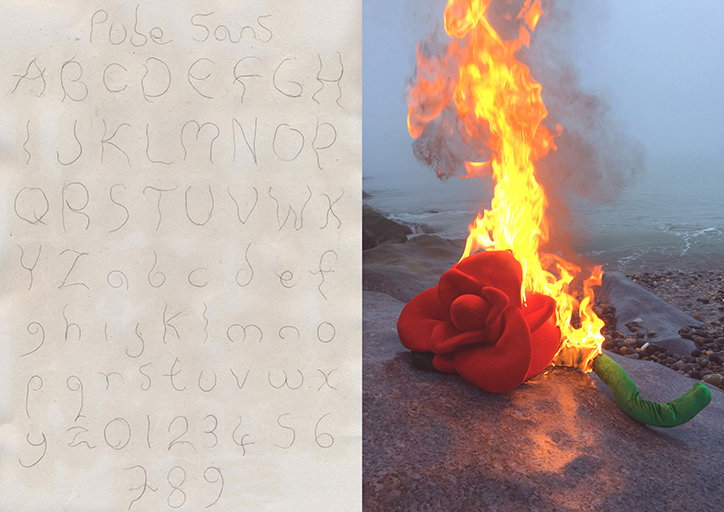 Pube Sans
A B C D E F G H
I J K L M N O P
Q R S T U V W X
Y Z a b c d e f
g h i j k l m n o
p q r s t u v w x
y z 0 1 2 3 4 5 6
7 8 9